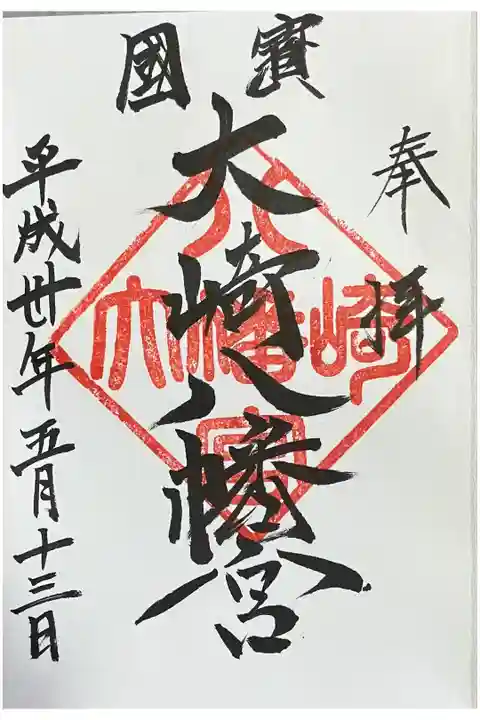 奉拝
寶國
大崎八幡宮
平成卅年五月十三日
大崎八幡宮